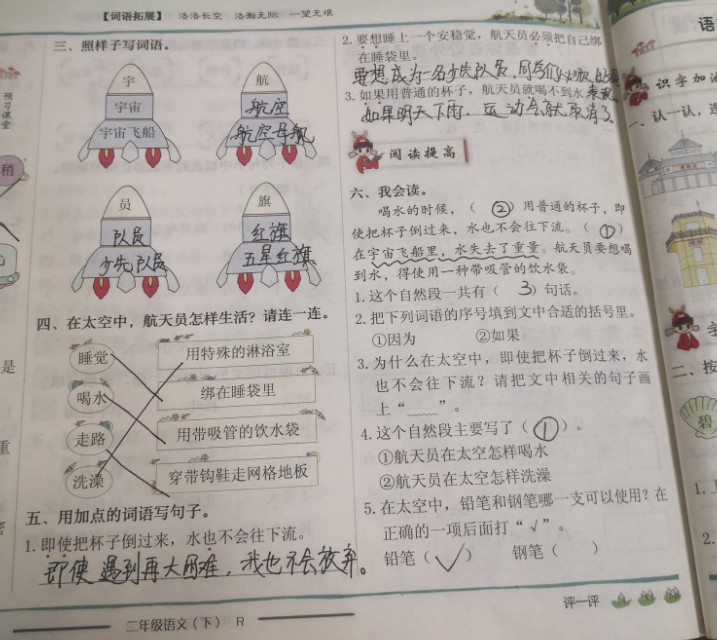 【词语拓展】 浩浩长空 浩瀚无际 一望无垠
三、照样子写词语。
宇
宇宙
宇宙飞船
航
航空
航空母舰
员
队员
少先队员
旗
红旗
五星红旗
四、在太空中，航天员怎样生活？请连一连。
睡觉 用特殊的淋浴室
喝水 绑在睡袋里
走路 用带吸管的饮水袋
洗澡 穿带钩鞋走网格地板
五、用加点的词语写句子。
1.即使把杯子倒过来，水也不会往下流。
即使遇到再大困难，我也不会放弃。
2.要想睡上一个安稳觉，航天员必须把自己绑
在睡袋里。
要想成为一名少先队员，同学们必须
3.如果用普通的杯子，航天员就喝不到水
如果明天下雨，运动会就取消了
阅读提高
六、我会读。
喝水的时候，（②）用普通的杯子，即
使把杯子倒过来，水也不会往下流。（①）
在宇宙飞船里，水失去了重量。航天员要想喝
到水，得使用一种带吸管的饮水袋。
1.这个自然段一共有（3）句话。
2.把下列词语的序号填到文中合适的括号里。
①因为 ②如果
3.为什么在太空中，即使把杯子倒过来，水
也不会往下流？请把文中相关的句子画
上“﹏﹏”。
4.这个自然段主要写了（①）。
①航天员在太空怎样喝水
②航天员在太空怎样洗澡
5.在太空中，铅笔和钢笔哪一支可以使用？在
正确的一项后面打“√”。
铅笔（√） 钢笔（ ）
评一评
二年级语文（下） R
预习课堂
稍
是
重
语
识字加油
一、认一认，连
二、按
碧
1.
2.